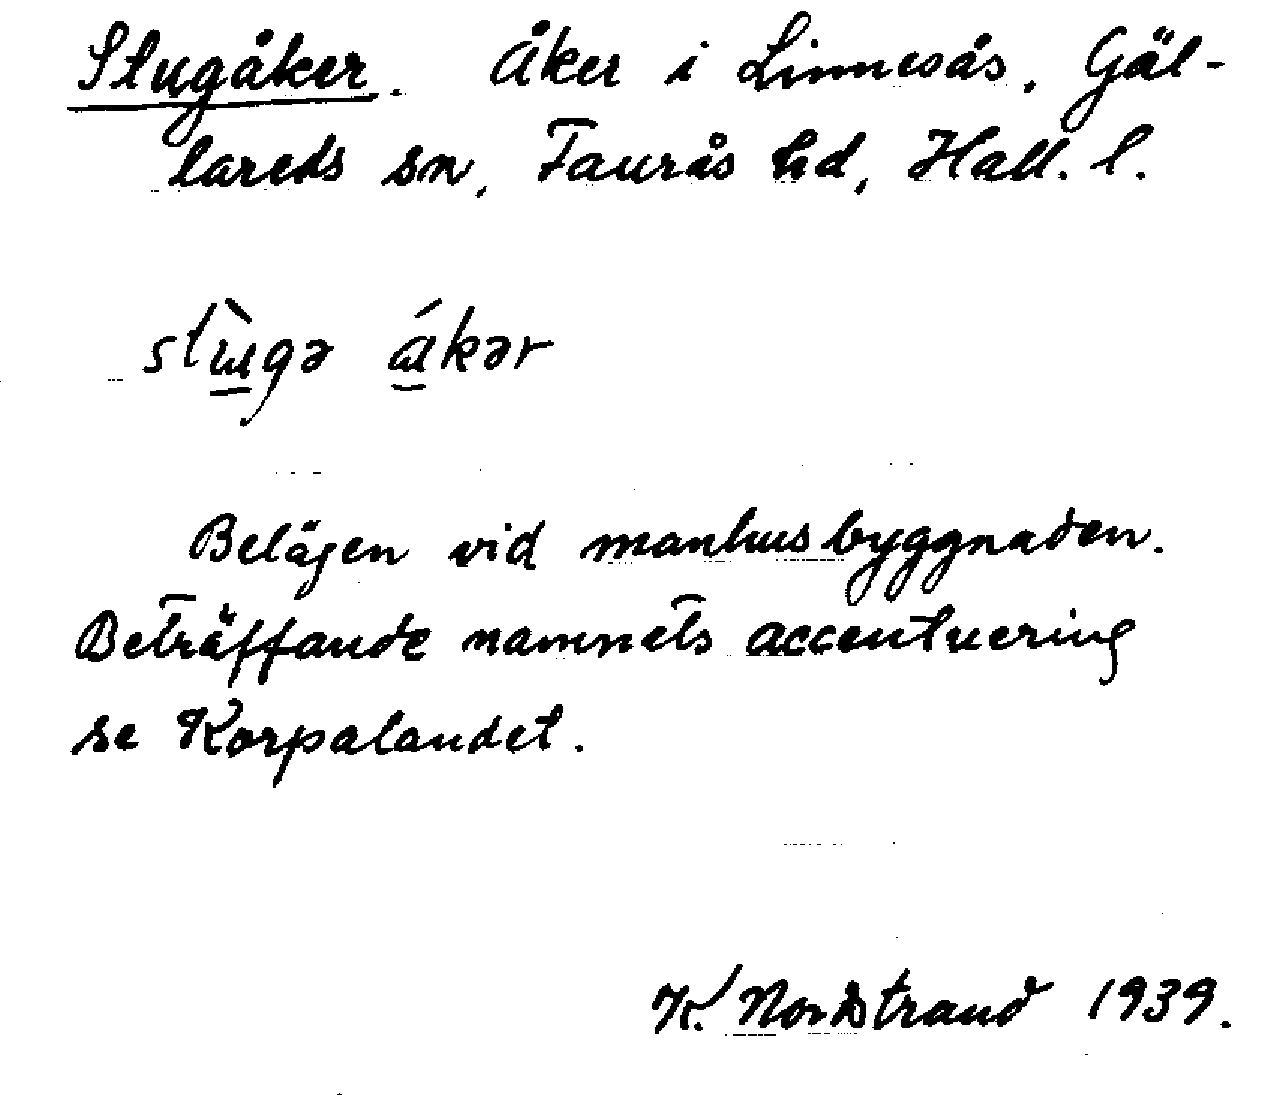 Stugåker. Åker i Linnesås, Gäl-
lareds sn, Faurås hd, Hall. l.
Belägen vid manhusbyggnaden.
Beträffande namnets accentuering
se Korpalandet.
K. Nordstrand 1939.